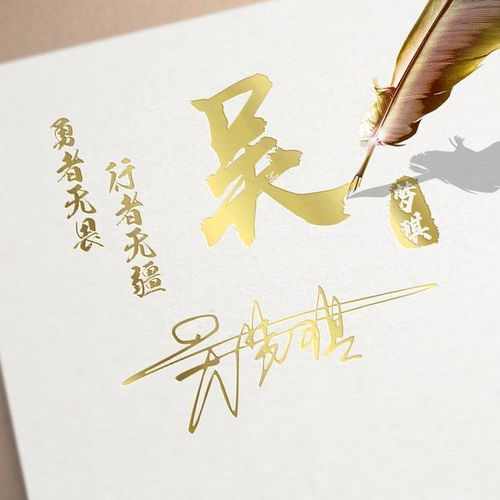 吴
梦琪
行者无疆
勇者无畏
吴梦琪